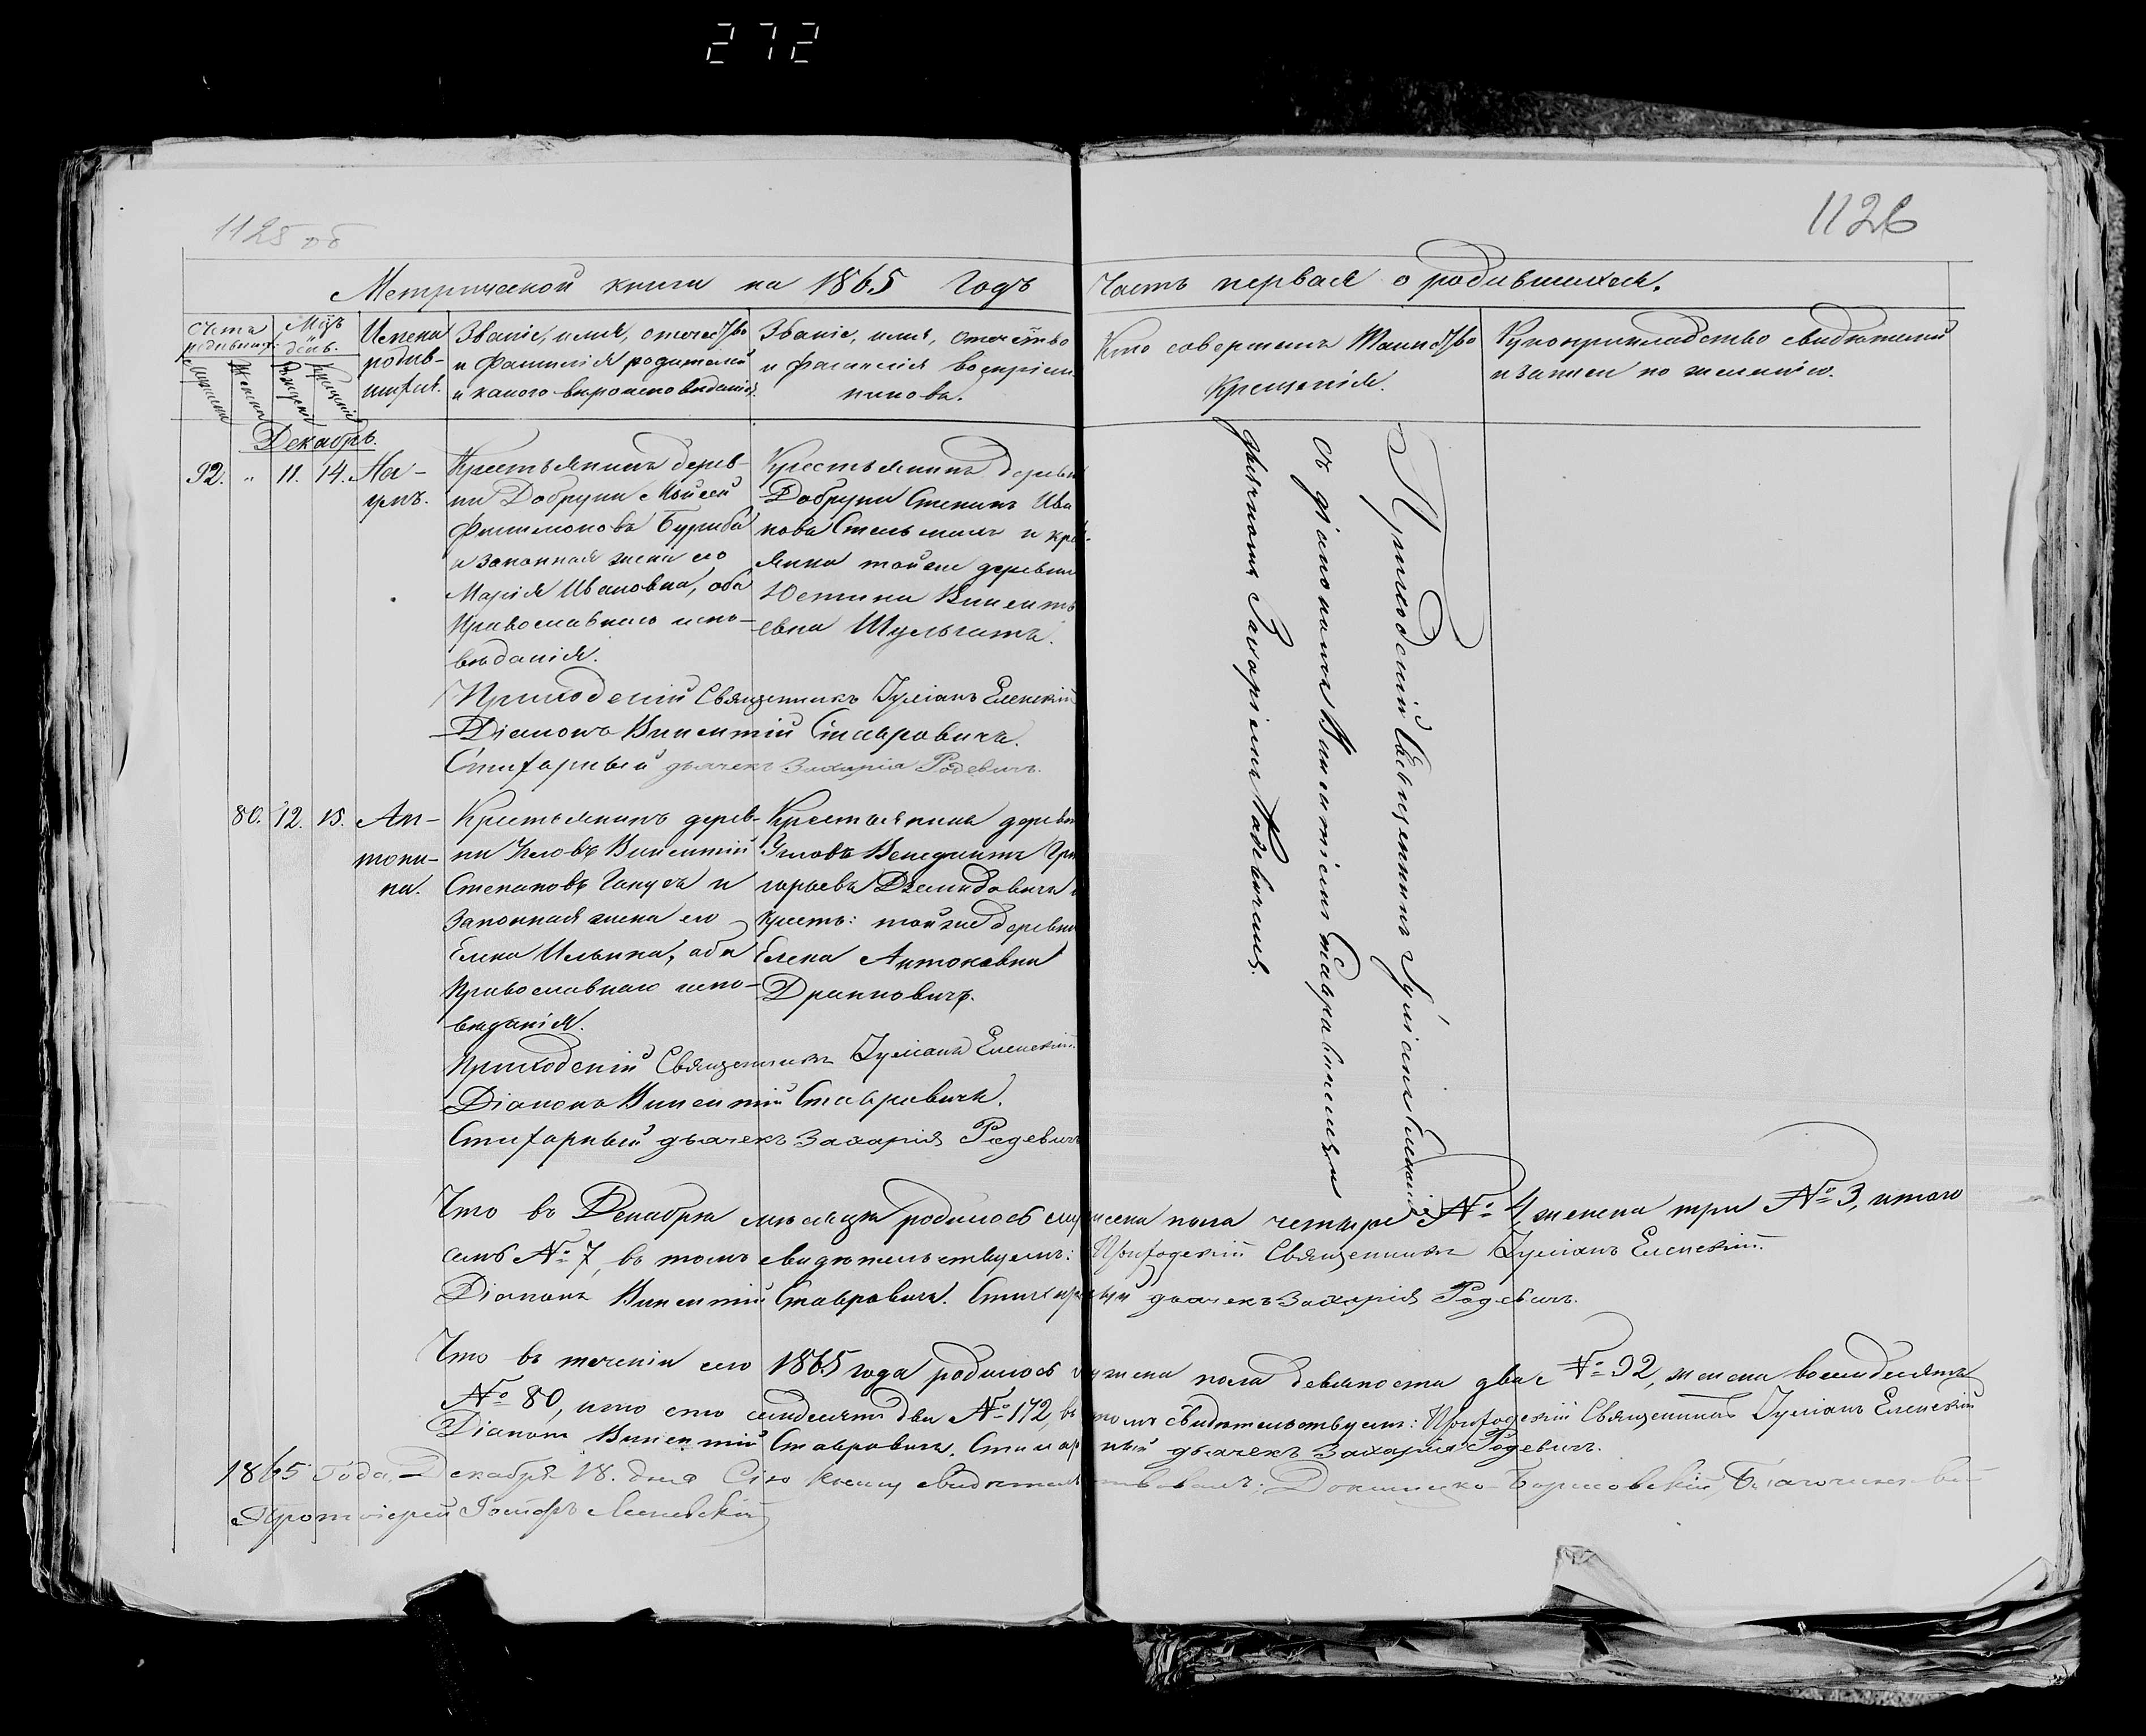 272
1125 об
1126
Метрической книги на 1865 годъ
Часть первая о родившихся.
Счетъ родившихъ.
Мѣся. и день.
Имена родив-шихся.
Званіе, имя, отечество и фамилія родителей и какого вѣроисповѣданія.
Званіе, имя, отечество и фамилія воспріем-никовъ.
Кто совершалъ Таинство Крещенія.
Рукоприкладство свидѣтелей и записи по желанію.
Мужеска
Женска
Рожденія
Крещенія
Декабрь.
92. " 11. 14.
На-
умъ.
Крестьянинъ дерев-
ни Добруни Мойсей
Филимоновъ Буриба
и законная жена его
Марія Ивановна, оба
Православнаго испо-
вѣданія.
Крестьянинъ деревни
Добруни Степанъ Ива
новъ Стельмахъ и кре
янка тойже деревни
Юстина Викенть
евна
Приходскій Священникъ Іуліанъ Еленскій
Діаконъ Викентій Ставровичъ.
Стихарный дьячекъ Захарія Родевичъ.
80. 12. 15.
Ан-
тони-
на.
Крестьянинъ дерев-
ни Викентій
Степановъ и
Законная жена его
Елена Ильина, оба
Православнаго испо-
вѣданія.
Крестьянинъ деревни
Венедиктъ Гри
горьевъ Демидовичъ и
Крест: тойже деревни
Елена Антоновна
Приходскій Священникъ Іуліанъ Еленскій.
Діаконъ Викентій Ставровичъ.
Стихарный дьячекъ Захарія Родевичъ
Приходскій Священникъ Іуліанъ Еленскій
съ діакономъ Викентіемъ Ставровичемъ и
дьячкомъ Захаріемъ Родевичемъ.
Что въ Декабрѣ мѣсяцѣ родилось мужеска пола четыре № 4, женска три № 3, итого
семь № 7, въ томъ свидѣтельствуемъ: Приходскій Священникъ Іуліанъ Еленскій.
Діаконъ Викентій Ставровичъ. Стихарный дьячекъ Захарія Родевичъ.
Что въ теченіи сего 1865 года родилось мужеска пола девяносто два № 92, женска восемдесятъ
№ 80, итого сто семдесятъ два № 172, въ томъ свидѣтельствуемъ: Приходскій Священникъ Іуліанъ Еленскій
Діаконъ Викентій Ставровичъ. Стихарный дьячекъ Захарія Родевичъ.
1865 Года, Декабря 18. дня Сію Книгу свидѣтельствовалъ: Докшицко-Борисовскій Благочинный
Протоіерей